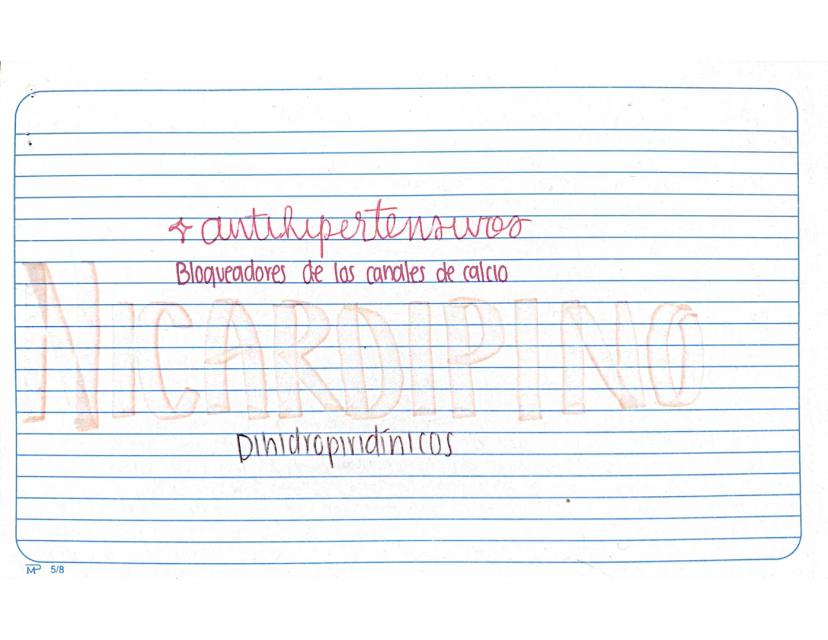 antihipertensivos
Bloqueadores de los canales de calcio
NICARDIPINO
Dihidropiridínicos
MP 5/8